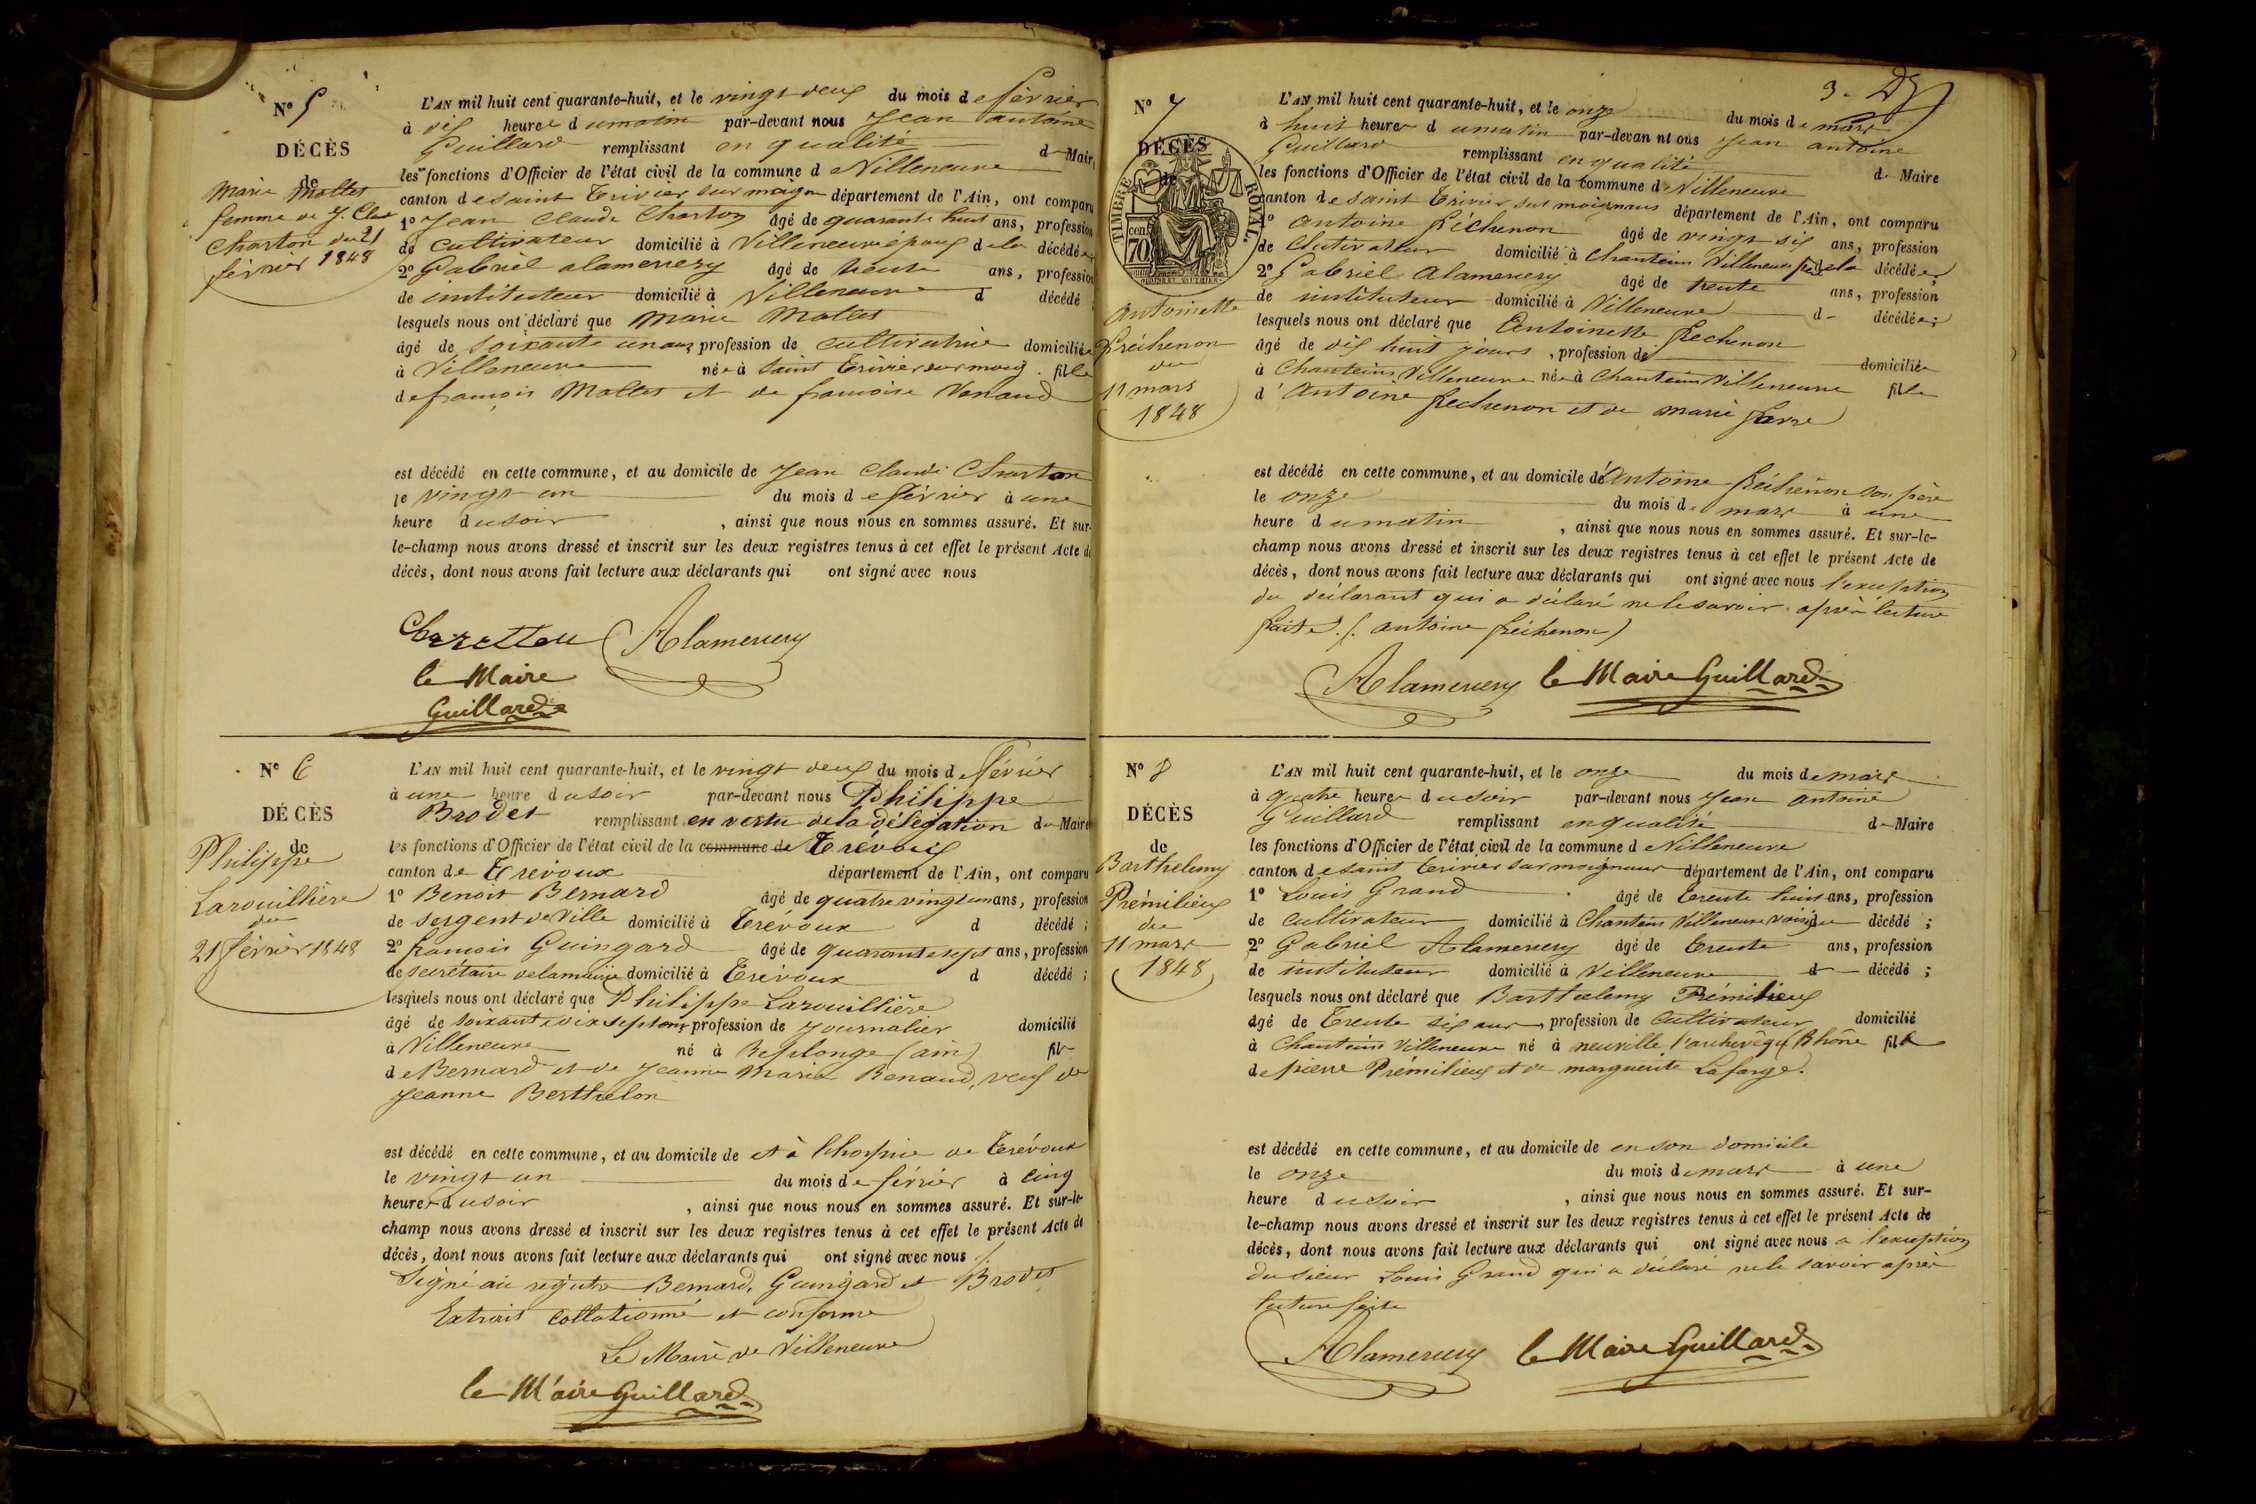 N° 5
DÉCÈS
de
Marie Mallet
femme de J. Cl
Charton du 21
février 1848
L'AN mil huit cent quarante-huit, et le vingt deux du mois de février
à dix heures du matin par-devant nous Jean Antoine
Guillard remplissant en qualité de Maire
les fonctions d'Officier de l'état civil de la commune de Villeneuve
canton de Saint Trivier sur moig département de l'Ain, ont comparu
1° Jean Claude Charton âgé de quarante huit ans, profession
de cultivateur domicilié à Villeneuve époux de la décédée
2° Gabriel Alamercery âgé de trente ans, profession
de instituteur domicilié à Villeneuve d décédé
lesquels nous ont déclaré que Marie Mallet
âgé de soixante un ans profession de cultivatrice domiciliée
à Villeneuve née à Saint Trivier sur moig. fille
de françois Mallet et de françoise Venaud
est décédé en cette commune, et au domicile de Jean Claude Charton
le vingt un du mois de février à une
heure du soir , ainsi que nous nous en sommes assuré. Et sur-
le-champ nous avons dressé et inscrit sur les deux registres tenus à cet effet le présent Acte de
décès, dont nous avons fait lecture aux déclarants qui ont signé avec nous
Alamercery
le Maire
Guillard
N° 6
DÉCÈS
de
Philippe
Larouillière
du
21 février 1848
L'AN mil huit cent quarante-huit, et le vingt deux du mois de février
à une heure du soir par-devant nous Philippe
Brodet remplissant en vertu de la délégation de Maire
les fonctions d'Officier de l'état civil de la commune de Trévoux
canton de Trevoux département de l'Ain, ont comparu
1° Benoit Bernard âgé de quatre vingt un ans, profession
de sergent de Ville domicilié à Trévoux d décédé ;
2° françois Guingard âgé de quarante sept ans, profession
de secrétaire de la mairie domicilié à Trévoux d décédé ;
lesquels nous ont déclaré que Philippe Larouillière
âgé de soixante dix sept ans profession de Journalier domicilié
à Villeneuve né à Replonge (ain) fils
de Bernard et de Jeanne Marie Renaud, veuf de
Jeanne Berthelon
est décédé en cette commune, et au domicile de et à l'hospice de Trévoux
le vingt un du mois de février à cinq
heures du soir , ainsi que nous nous en sommes assuré. Et sur-le-
champ nous avons dressé et inscrit sur les deux registres tenus à cet effet le présent Acte de
décès, dont nous avons fait lecture aux déclarants qui ont signé avec nous
Signé au registre Bernard, Guingard et Brodet
Extrait collationné et conforme
Le Maire de Villeneuve
le Maire Guillard
3.
N° 7
DÉCÈS
de
TIMBRE ROYAL.
cen. 70
Antoinette
fréchenon
du
11 mars
1848
L'AN mil huit cent quarante-huit, et le onze du mois de mars
à huit heures du matin par-devan nt ous Jean Antoine
Guillard remplissant en qualité de Maire
les fonctions d'Officier de l'état civil de la commune de Villeneuve
canton de Saint Trivier sur moignans département de l'Ain, ont comparu
1° Antoine fréchenon âgé de vingt six ans, profession
de Cultivateur domicilié à Chanteins Villeneuve père de la décédée ;
2° Gabriel Alamercery âgé de trente ans, profession
de instituteur domicilié à Villeneuve d décédée ;
lesquels nous ont déclaré que Antoinette frechenon
âgé de dix huit jours , profession de domiciliée
à Chanteins Villeneuve née à Chanteins Villeneuve fille
d'Antoine frechenon et de marie farre
est décédé en cette commune, et au domicile de Antoine fréchenon son père
le onze du mois de mars à une
heure du matin , ainsi que nous nous en sommes assuré. Et sur-le-
champ nous avons dressé et inscrit sur les deux registres tenus à cet effet le présent Acte de
décès, dont nous avons fait lecture aux déclarants qui ont signé avec nous l'exception
du déclarant qui a déclaré ne le savoir après lecture
faite. (. Antoine fréchenon)
Alamercery le Maire Guillard
N° 8
DÉCÈS
de
Barthelemy
Prémilieux
du
11 mars
1848
L'AN mil huit cent quarante-huit, et le onze du mois de mars
à quatre heures du soir par-devant nous Jean Antoine
Guillard remplissant en qualité de Maire
les fonctions d'Officier de l'état civil de la commune de Villeneuve
canton de Saint Trivier sur moignans département de l'Ain, ont comparu
1° Louis Grand âgé de trente huit ans, profession
de cultivateur domicilié à Chanteins Villeneuve voisin du décédé ;
2° Gabriel Alamercery âgé de trente ans, profession
de instituteur domicilié à Villeneuve d décédé ;
lesquels nous ont déclaré que Barthelemy Prémilieux
âgé de Trente six ans, profession de Cultivateur domicilié
à Chanteins Villeneuve né à neuville l'archevêque (Rhône fils
de pierre Prémilieux et de marguerite Lafarge.
est décédé en cette commune, et au domicile de en son domicile
le onze du mois de mars à une
heure du soir , ainsi que nous nous en sommes assuré. Et sur-
le-champ nous avons dressé et inscrit sur les deux registres tenus à cet effet le présent Acte de
décès, dont nous avons fait lecture aux déclarants qui ont signé avec nous a l'exception
du sieur Louis Grand qui a déclaré ne le savoir après
lecture faite
Alamercery le Maire Guillard